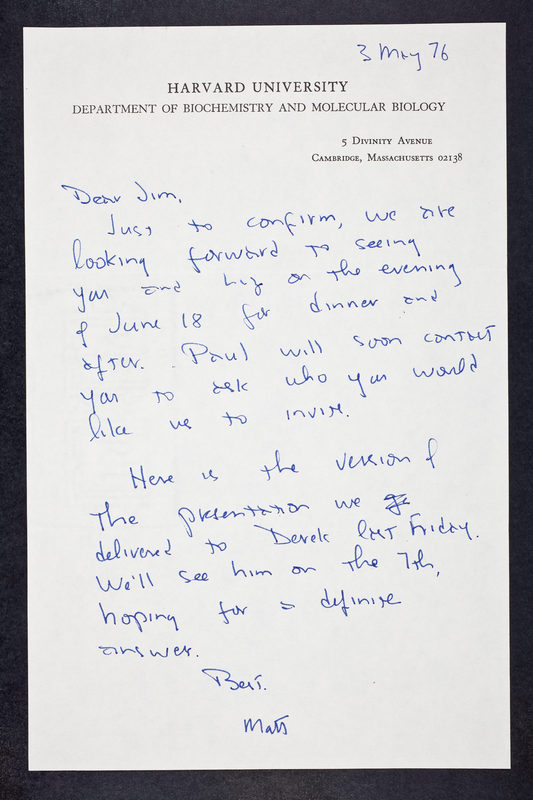 3 May 76
HARVARD UNIVERSITY
DEPARTMENT OF BIOCHEMISTRY AND MOLECULAR BIOLOGY
5 DIVINITY AVENUE
CAMBRIDGE, MASSACHUSETTS 02138
Dear Jim,
Just to confirm, we are
looking forward to seeing
you and Liz on the evening
of June 18 for dinner and
after. Paul will soon contact
you to ask who you would
like us to invite.
Here is the version of
the presentation we
delivered to Derek last Friday.
We'll see him on the 7th,
hoping for a definite
answer.
Best.
Matt